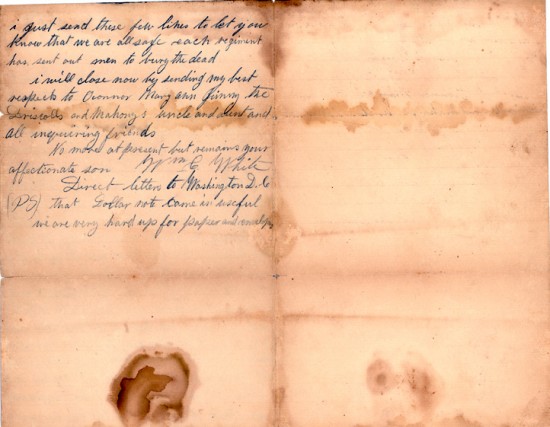 i just send these few lines to let you
know that we are all safe each regiment
has sent out men to bury the dead
i will close now by sending my best
respects to Oconnor Mary ann Jimmy the
Driscolls and Mahony's uncle and aunt and
all inquiring friends
No more at present but remains your
affectionate son Wm C White
Direct letters to Washington D.C
(PS) that Dollar note came in useful
we are very hard up for paper and